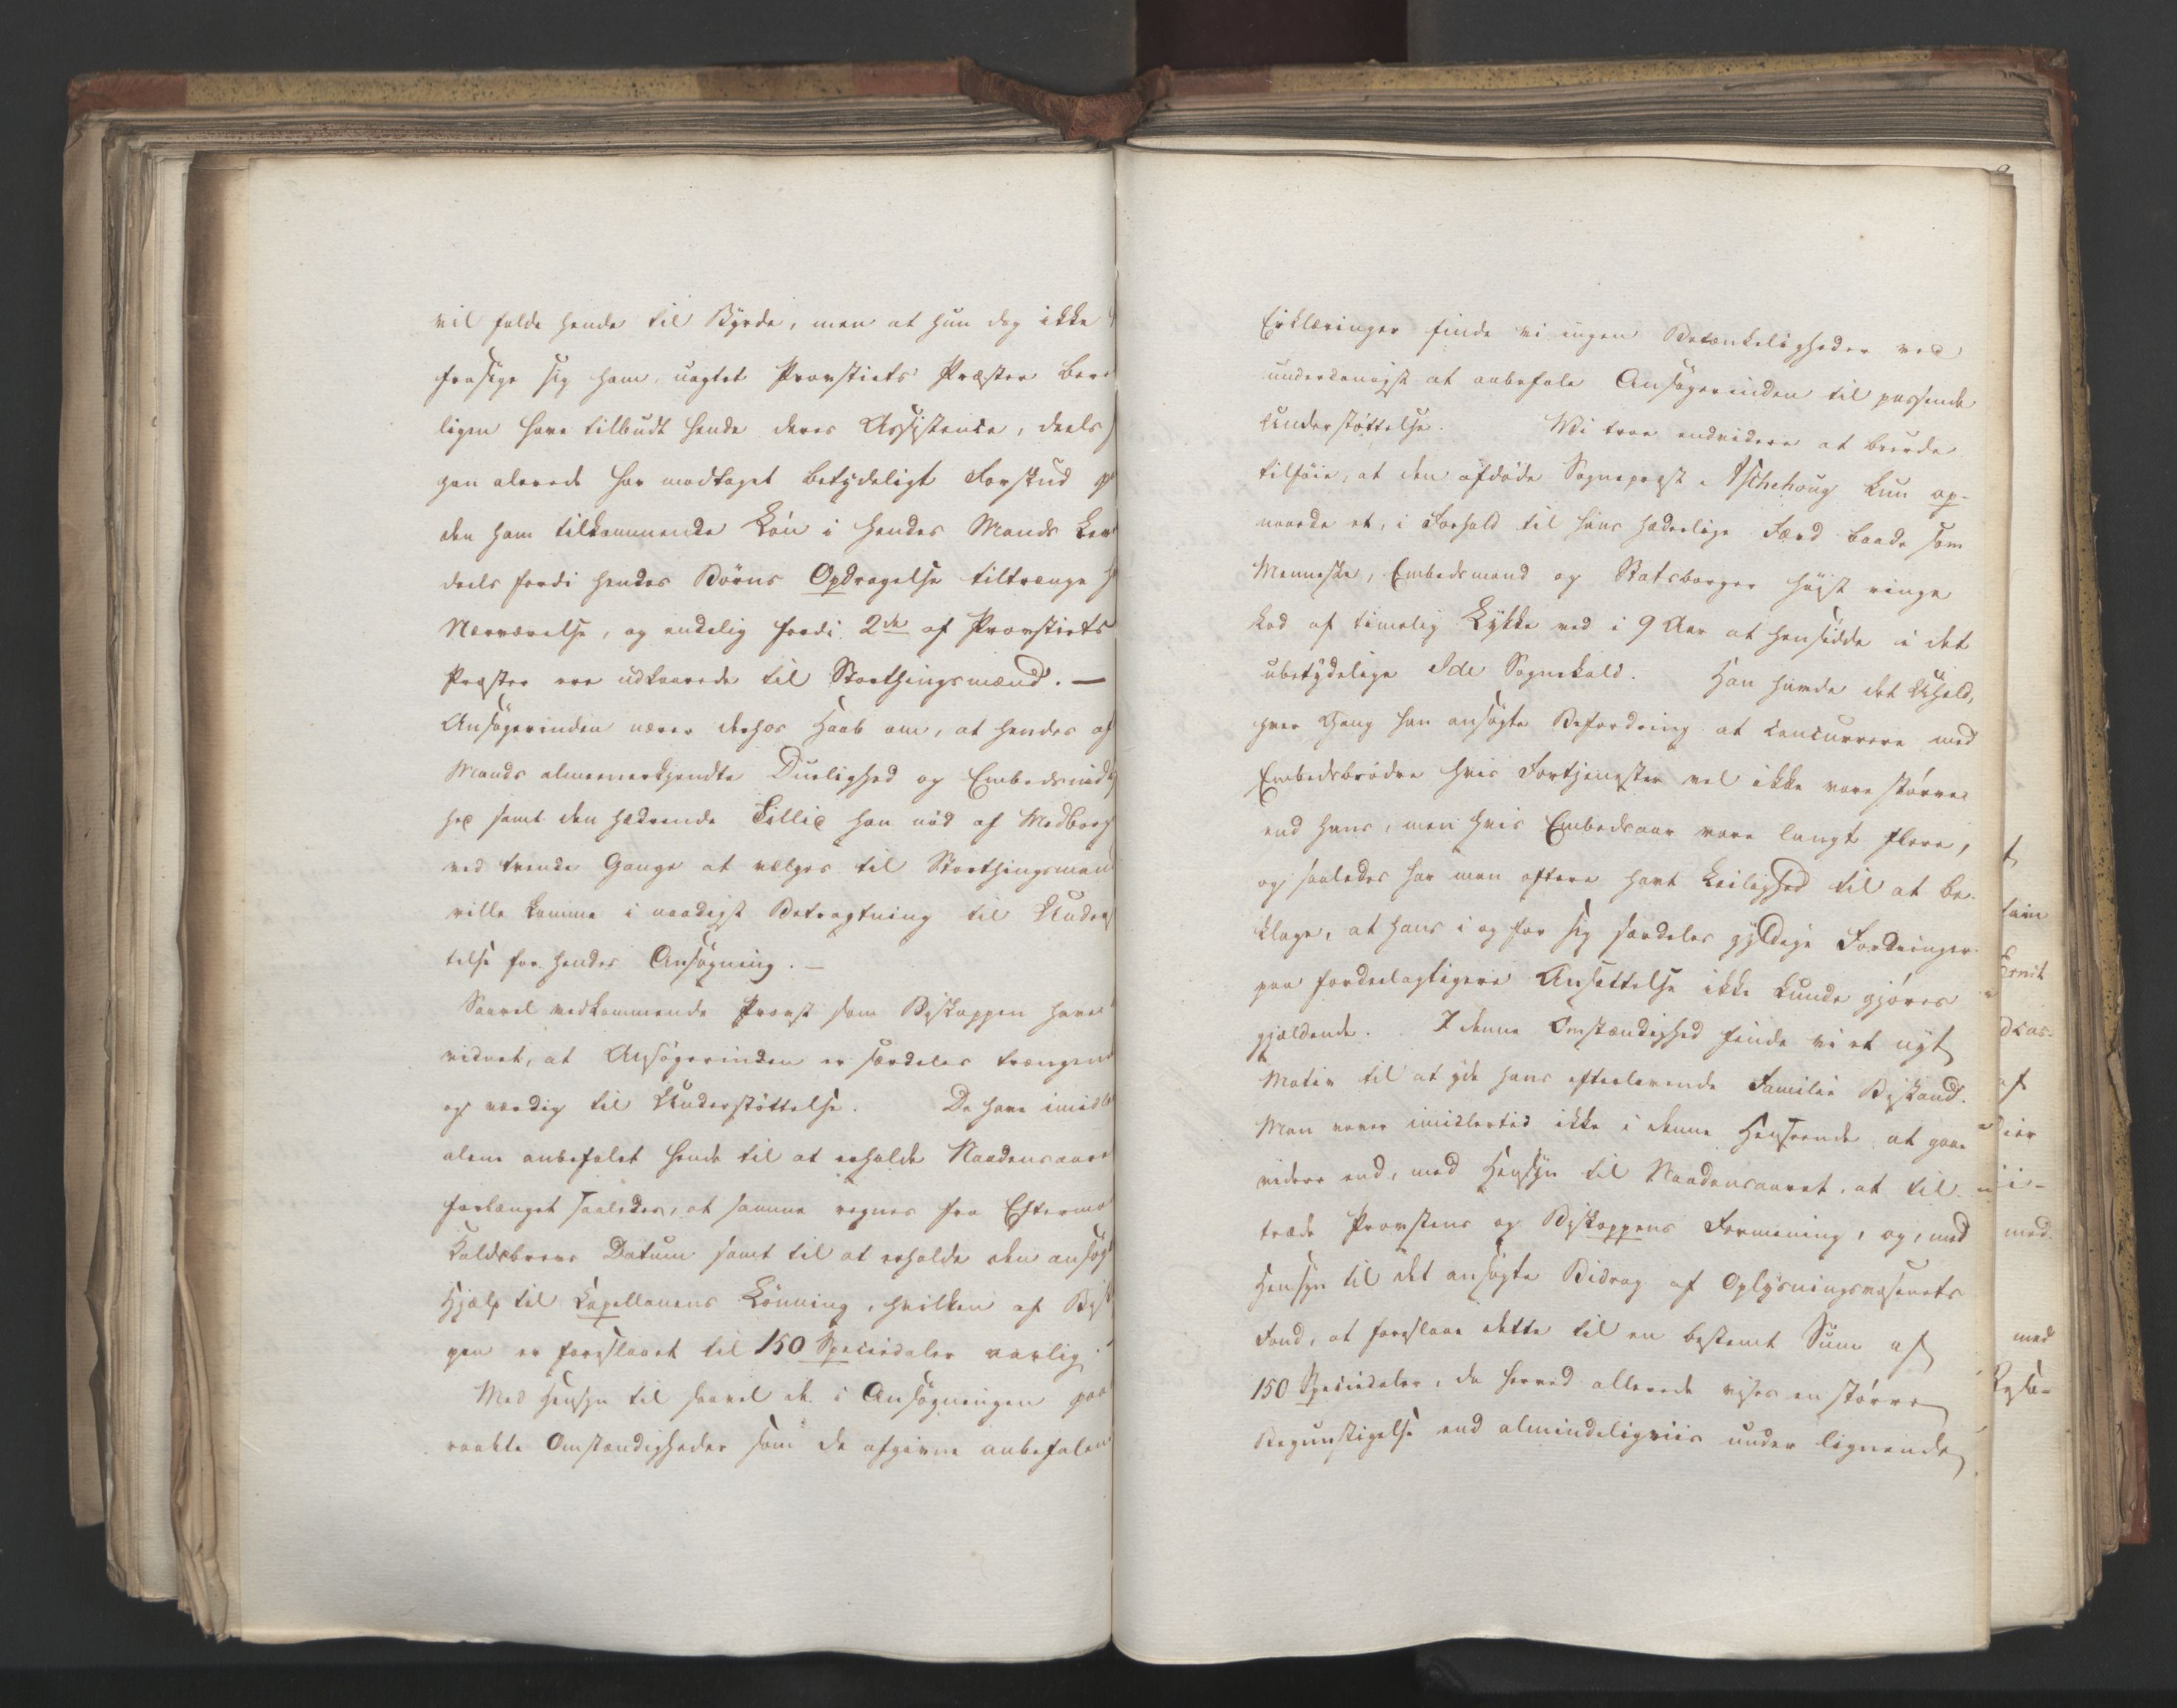 vil falde hende til Byrde, men at hun dog ikke
frasige sig ham, uagtet Provstiets Præster bere
ligen have tilbudt hende deres Assistence, deels
han alerede har modtaget betydeligt Forskud p
den ham tilkommende Løn i hendes Mands Lev
deels fordi hendes Børns Opdragelse tiltrænge h
Nærværelse, og endelig fordi 2de af Provstiets
Præster ere udkaarede til Storthingsmænd. —
Ansøgerinden nærer derhos Haab om, at hendes af
Mands almeenerkjendte Duelighed og Embedsnid
hed samt den hædrende Tillid han nød af Medborg
ved trende Gange at vælges til Storthingsmand
ville komme i naadigst Betragtning til Unders
telse for hendes Ansøgning. —
Saavel vedkommende Provst som Biskoppen have
vidnet, at Ansøgerinden er særdeles trængend
og værdig til Understøttelse. De have imidle
alene anbefalet hende til at erholde Naadensaare
forlænget saaledes, at samme regnes fra Efterma
Kaldsbrevs Datum samt til at erholde den ansøgt
Hjælp til Kapellanens Lønning, hvilken af Bisk
pen er foreslaaet til 150 Speciedaler aarlig.
Med Hensyn til saavel de i Ansøgningen paa
raabte Omstændigheder som de afgivne anbefalen
Erklæringer finde vi ingen Betænkeligheder ved
underdanigst at anbefale Ansøgerinden til passende
Understøttelse. Vi troe endvidere at burde
tilføie, at den afdøde Sognepræst Aschehoug kun op-
naaede et, i Forhold til hans hæderlige Færd baade som
Menneske, Embedsmand og Statsborger høist ringe
Lod af timelig Lykke ved i 9 Aar at hensidde i det
ubetydelige Ide Sognekald. Han havde det Uheld,
hver Gang han ansøgte Befordring at concurrere med
Embedsbrødre hvis Fortjenester vel ikke vare større
end hans, men hvis Embedsaar vare langt flere,
og saaledes har man oftere havt Leilighed til at be-
klage, at hans i og for sig særdeles gyldige Fordringer
paa fordeelagtigere Ansættelse ikke kunde gjøres
gjældende. I denne Omstændighed finde vi et nyt
Motiv til at yde hans efterlevende Familie Bistand.
Man vover imidlertid ikke i denne Henseende at gaae
videre end, med Hensyn til Naadensaaret, at til-
træde Provstens og Biskoppens Formening, og, med
Hensyn til det ansøgte Bidrag af Oplysningsvæsenets
Fond, at foreslaae dette til en bestemt Sum af
150 Speciedaler, da herved allerede vises en større
Begunstigelse end almindeligviis under lignende